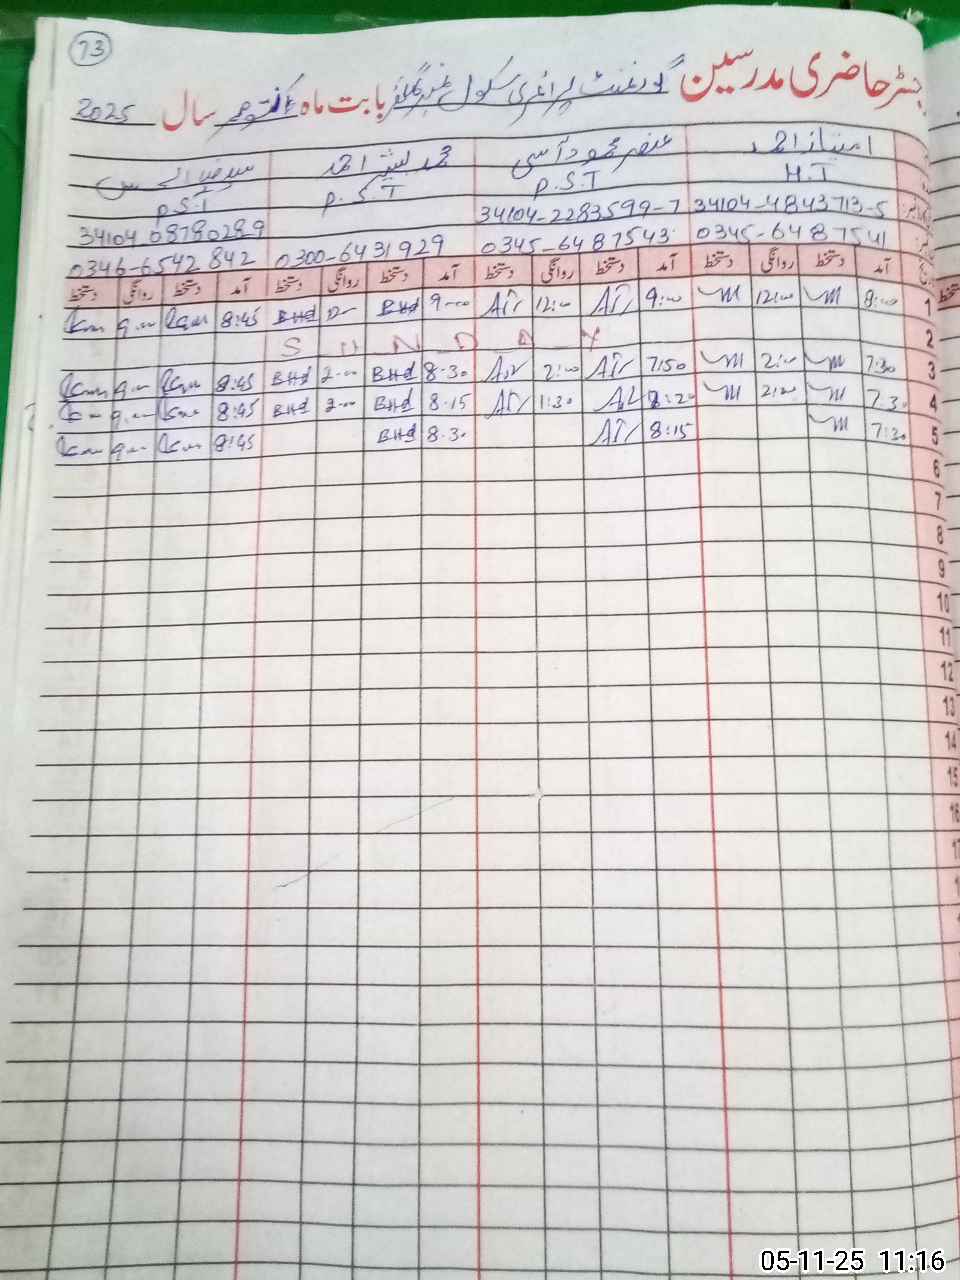 73
رجسٹر حاضری مدرسین گورنمنٹ پرائمری سکول بابت ماہ سال 2025
امتیاز احمد عنصر محمود آسی محمد بشیر احمد
H.T P.S.T P.S.T P.S.T
34104-4843713-5 34104-2283599-7 34104 08780289
0345-6487541 0345-6487543 0300-6431929 0346-6542842
آمد دستخط روانگی دستخط آمد دستخط روانگی دستخط آمد دستخط روانگی دستخط آمد دستخط روانگی دستخط
1 8:00 12:00 9:00 12:00 9-00 BHd BHd 8:45 9-00
2 SUNDAY
3 7:30 2:00 7:50 2:00 8-30 BHd 2-00 BHd 8:45 9-00
4 7:30 2:00 8:20 1:30 8-15 BHd 2-00 BHd 8:45 9-00
5 7:30 8:15 8-30 BHd 8:45 9-00
6
7
8
9
10
11
12
13
14
15
16
05-11-25 11:16